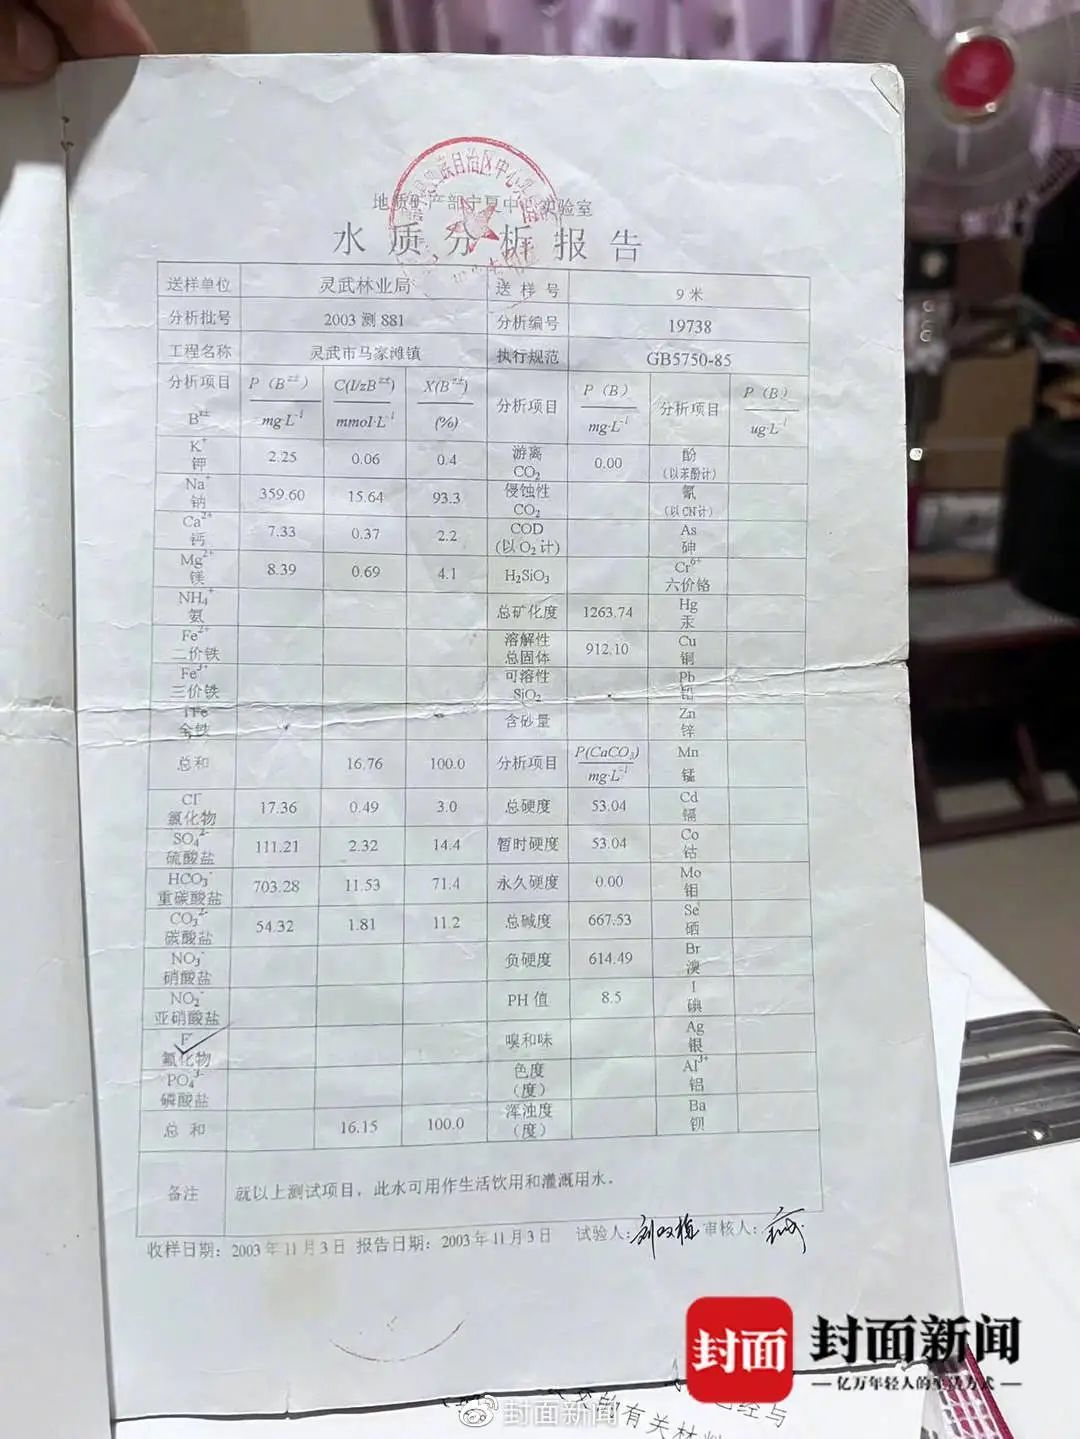 族自治区中心
地质矿产部宁夏中心实验室
水质分析报告
送样单位 灵武林业局 送样号 9米
分析批号 2003测881 分析编号 19738
工程名称 灵武市马家滩镇 执行规范 GB5750-85
分析项目 B^z± P(B^z±) mg·L^-1 C(1/zB^z±) mmol·L^-1 X(B^z±) (%) 分析项目 P(B) mg·L^-1 分析项目 P(B) ug·L^-1
K⁺ 钾 2.25 0.06 0.4 游离 CO₂ 0.00 酚 (以苯酚计)
Na⁺ 钠 359.60 15.64 93.3 侵蚀性 CO₂ 氰 (以CN计)
Ca²⁺ 钙 7.33 0.37 2.2 COD (以O₂计) As 砷
Mg²⁺ 镁 8.39 0.69 4.1 H₂SiO₃ Cr⁶⁺ 六价铬
NH₄⁺ 氨 总矿化度 1263.74 Hg 汞
Fe²⁺ 二价铁 溶解性总固体 912.10 Cu 铜
Fe³⁺ 三价铁 可溶性 SiO₂ Pb 铅
TFe 全铁 含砂量 Zn 锌
总和 16.76 100.0 分析项目 P(CaCO₃) mg·L^-1 Mn 锰
Cl⁻ 氯化物 17.36 0.49 3.0 总硬度 53.04 Cd 镉
SO₄²⁻ 硫酸盐 111.21 2.32 14.4 暂时硬度 53.04 Co 钴
HCO₃⁻ 重碳酸盐 703.28 11.53 71.4 永久硬度 0.00 Mo 钼
CO₃²⁻ 碳酸盐 54.32 1.81 11.2 总碱度 667.53 Se 硒
NO₃⁻ 硝酸盐 负硬度 614.49 Br 溴
NO₂⁻ 亚硝酸盐 PH值 8.5 I 碘
F⁻ 氟化物 嗅和味 Ag 银
PO₄³⁻ 磷酸盐 色度 (度) Al³⁺ 铝
总和 16.15 100.0 浑浊度 (度) Ba 钡
备注 就以上测试项目，此水可用作生活饮用和灌溉用水。
收样日期：2003年11月3日 报告日期：2003年11月3日 试验人：刘双梅 审核人：
封面 封面新闻
亿万年轻人的生活方式
已经与
封面新闻
的有关材料